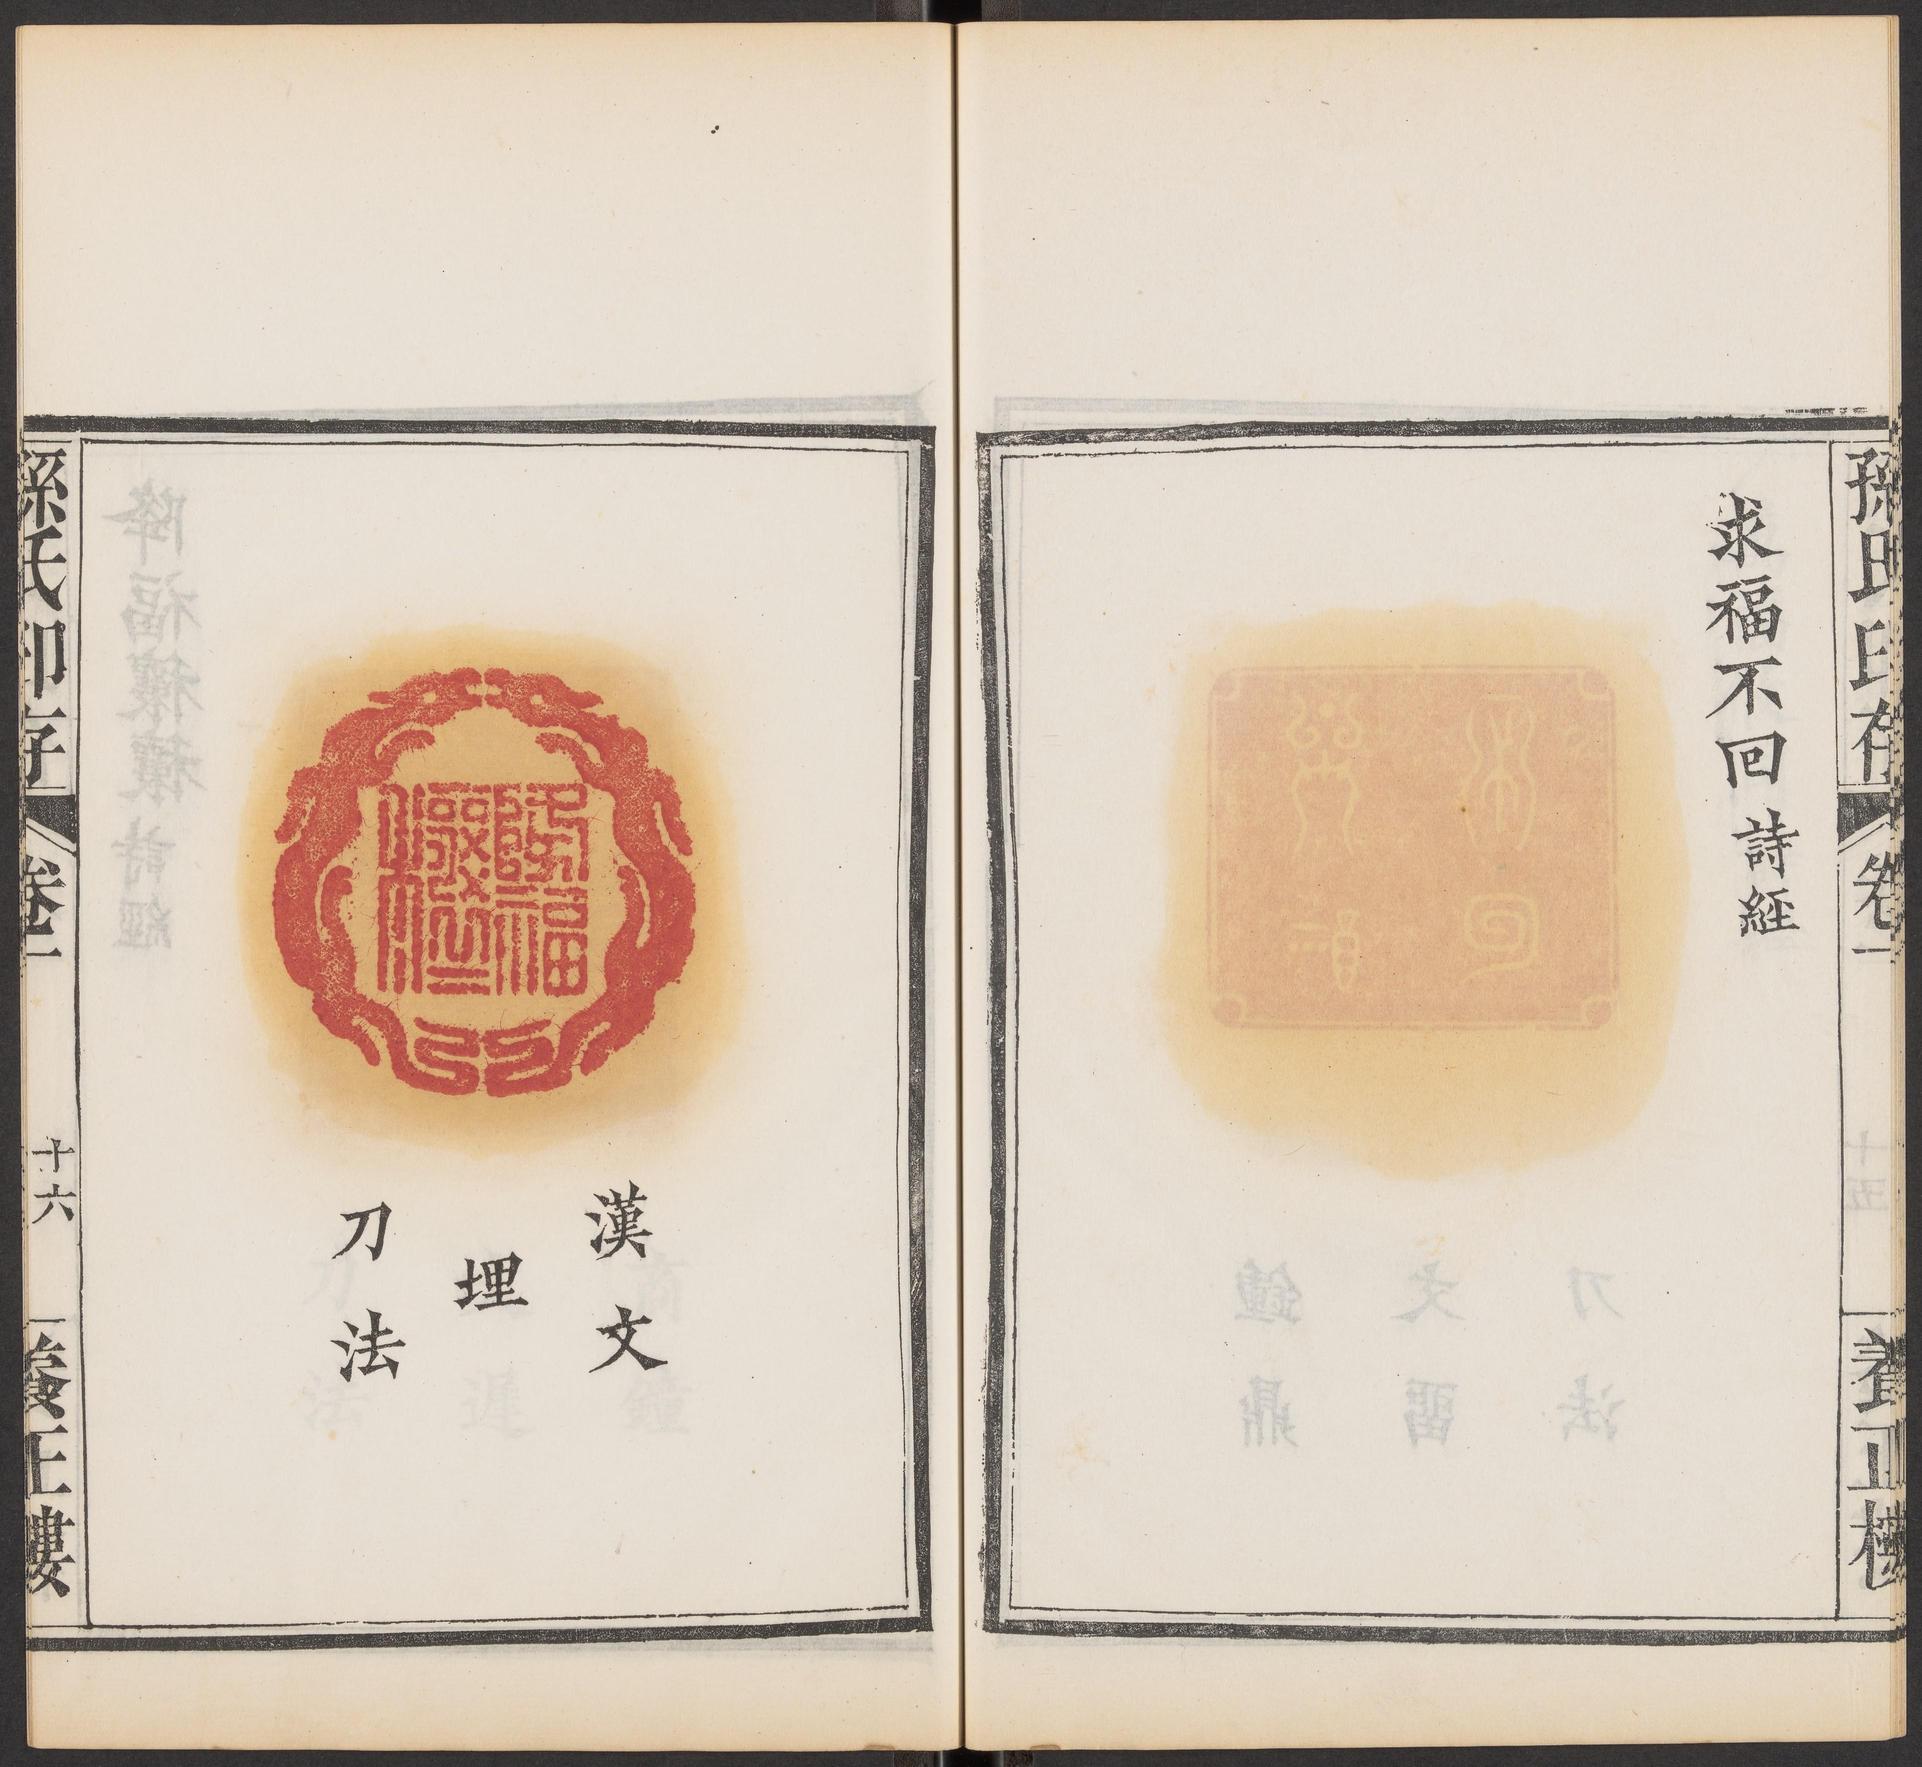 孫氏印存
卷一
養正樓
求福不回 詩經
降福穰穰
漢文
埋
刀法
孫氏印存
卷一
十六
養正樓